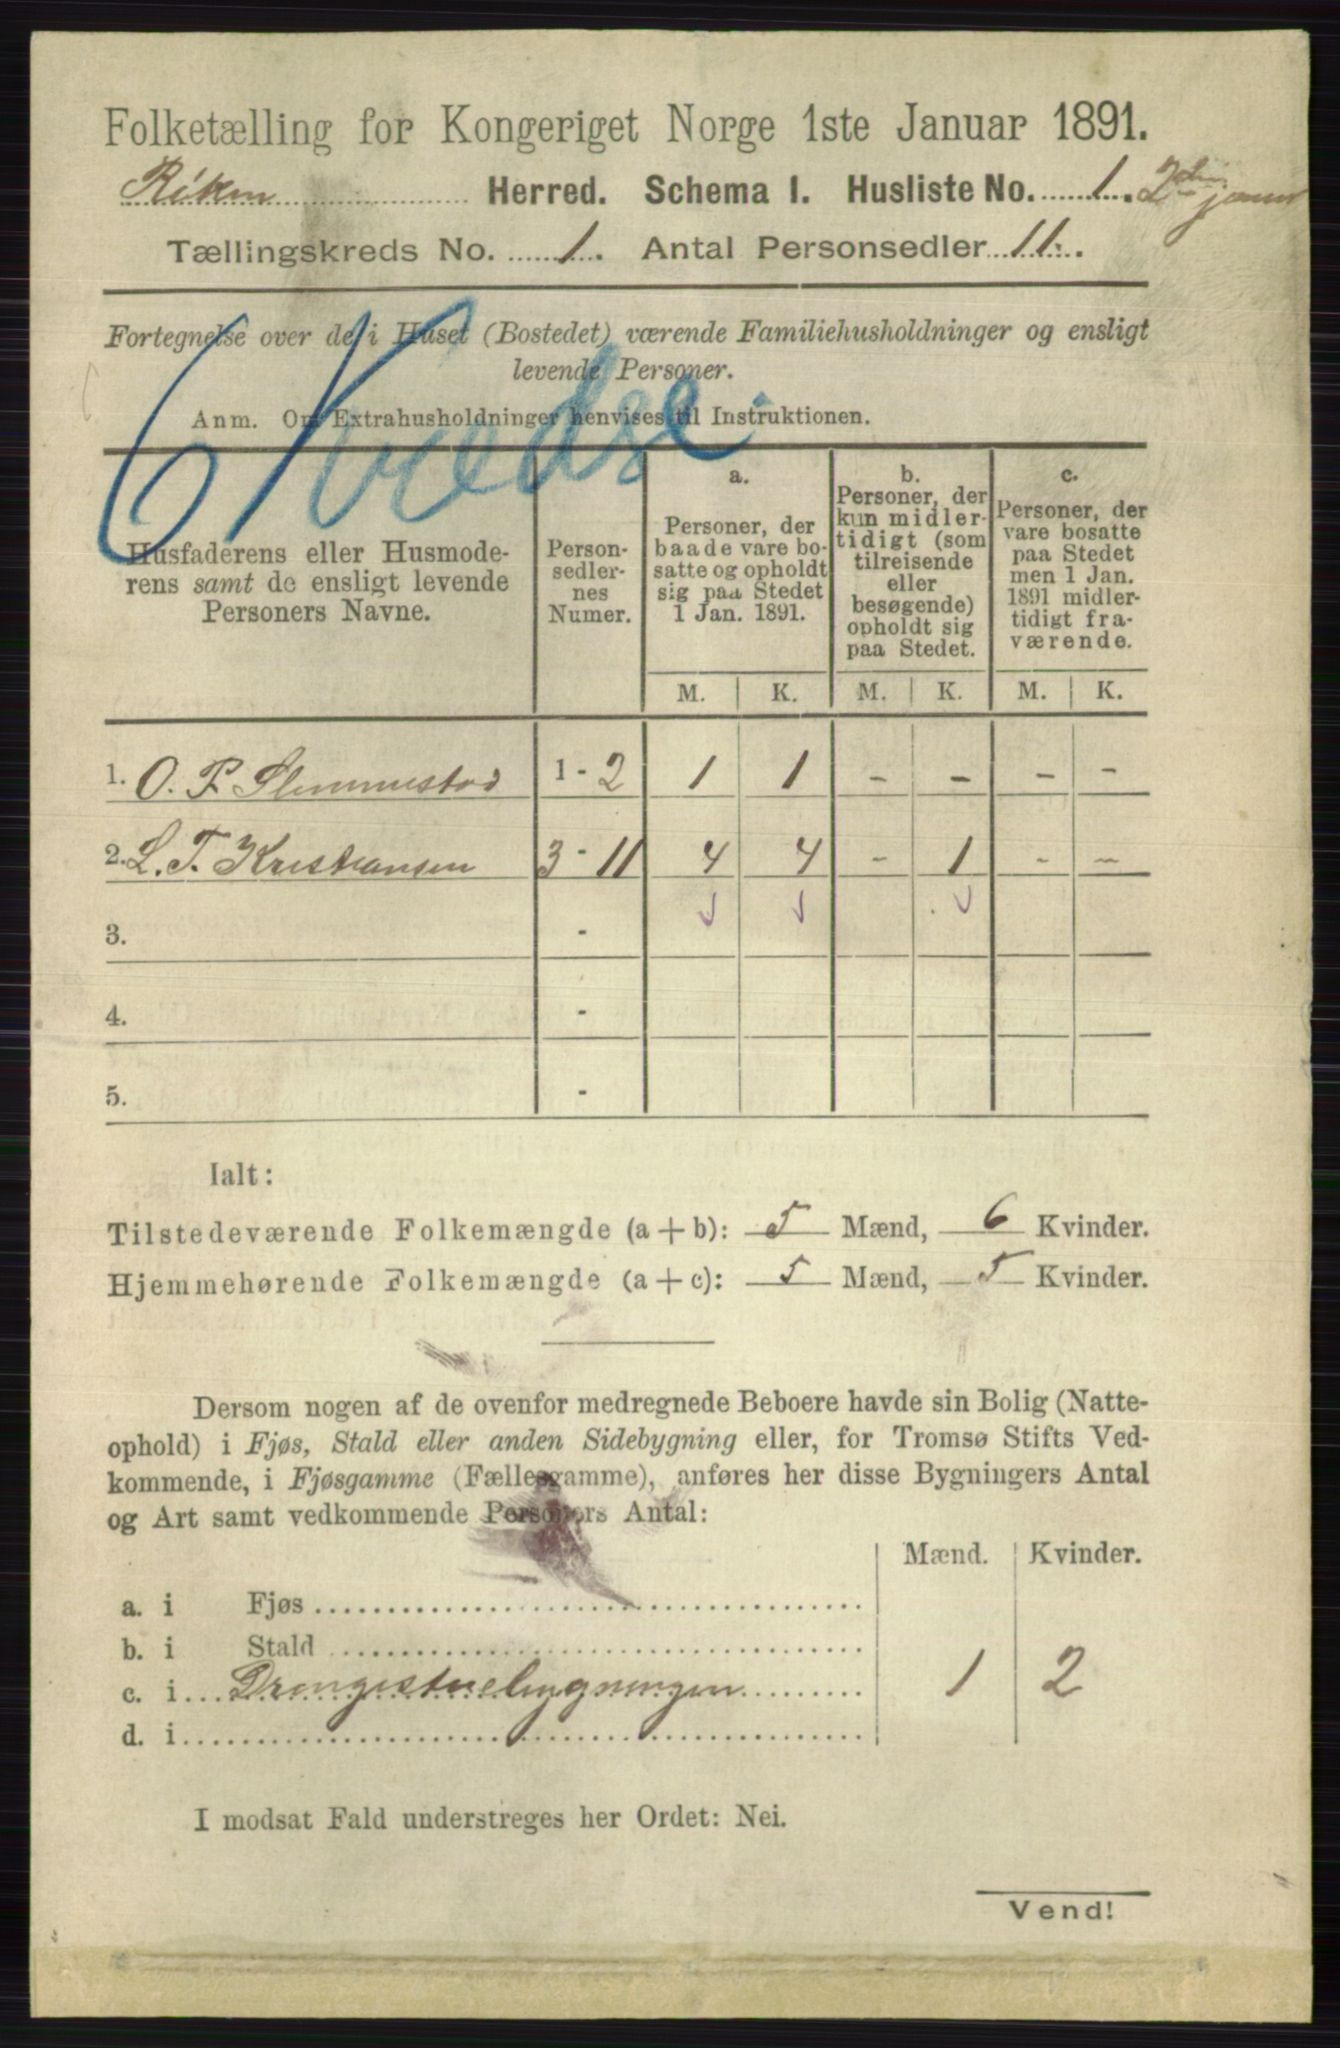 Folketælling for Kongeriget Norge 1ste Januar 1891.
Röken Herred. Schema I. Husliste No. 1. 2den januar
Tællingskreds No. 1. Antal Personsedler 11.
Fortegnelse over de i Huset (Bostedet) værende Familiehusholdninger og ensligt
levende Personer.
Anm. Om Extrahusholdninger henvises til Instruktionen.
Husfaderens eller Husmode-
rens samt de ensligt levende
Personers Navne.
Person-
sedler-
nes
Numer.
a.
Personer, der
baade vare bo-
satte og opholdt
sig paa Stedet
1 Jan. 1891.
b.
Personer, der
kun midler-
tidigt (som
tilreisende
eller
besøgende)
opholdt sig
paa Stedet.
c.
Personer, der
vare bosatte
paa Stedet
men 1 Jan.
1891 midler-
tidigt fra-
værende.
M. K. M. K. M. K.
1. O. P. Slemmestad 1 - 2 1 1 - - - -
2. L. T. Kristiansen 3 - 11 4 4 - 1 - -
3. -
4. -
5. -
Ialt:
Tilstedeværende Folkemængde (a + b): 5 Mænd, 6 Kvinder.
Hjemmehørende Folkemængde (a + c): 5 Mænd, 5 Kvinder.
Dersom nogen af de ovenfor medregnede Beboere havde sin Bolig (Natte-
ophold) i Fjøs, Stald eller anden Sidebygning eller, for Tromsø Stifts Ved-
kommende, i Fjøsgamme (Fællesgamme), anføres her disse Bygningers Antal
og Art samt vedkommende Personers Antal:
Mænd. Kvinder.
a. i Fjøs
b. i Stald
c. i Drengestuebygningen 1 2
d. i
I modsat Fald understreges her Ordet: Nei.
Vend!